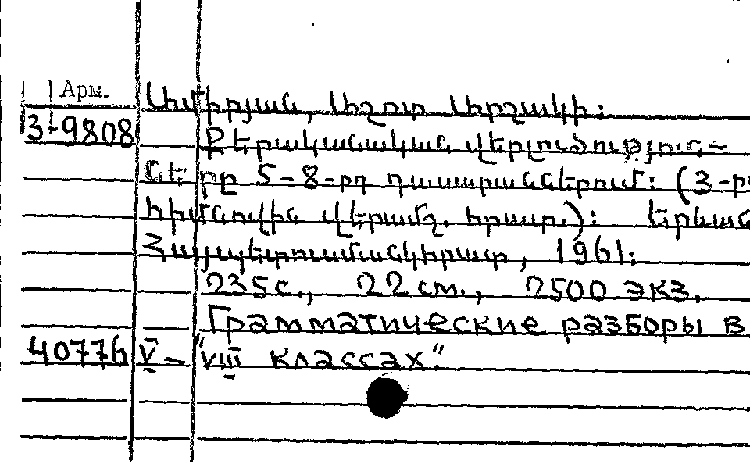 Арм.
Ամիրյան, Աշոտ Արշակի:
3-9808
Քերականական վերլուծություն-
ները 5-8-րդ դասարաններում: (3-րդ
հիմնովին վերամշ. հրատ.): Երևան
Հայպետուսմանկհրատ, 1961:
235с., 22 см., 2500 экз.
"Грамматические разборы в
40776 V – VIII классах"